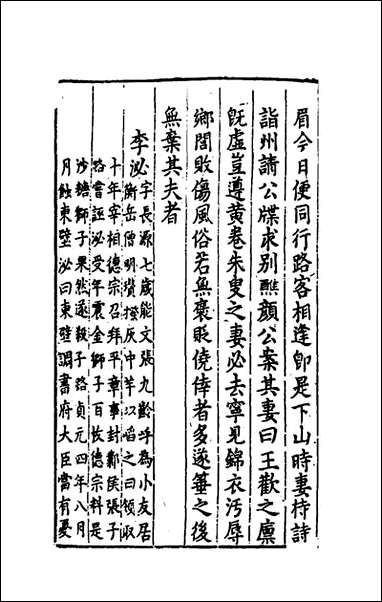 眉今日便同行路客相逢卽是下山時妻持詩
詣州請公牒求别醮顔公案其妻曰王歡之廪
旣虛豈遵黄卷朱叟之妻必去寧見錦衣汚辱
鄉閭敗傷風俗若無褒貶僥倖者多遂箠之後
無棄其夫者
李泌字長源七歲能文張九齡呼為小友居
衡岳僧明瓚撥灰中芋以啗之曰領取
十年宰相德宗召拜平章事封鄴侯張子
路嘗誣泌受年震金獅子百枚德宗料是
沙糖獅子果然遂殺子路貞元四年八月
月蝕東壁泌曰東壁謂書府大臣當有憂